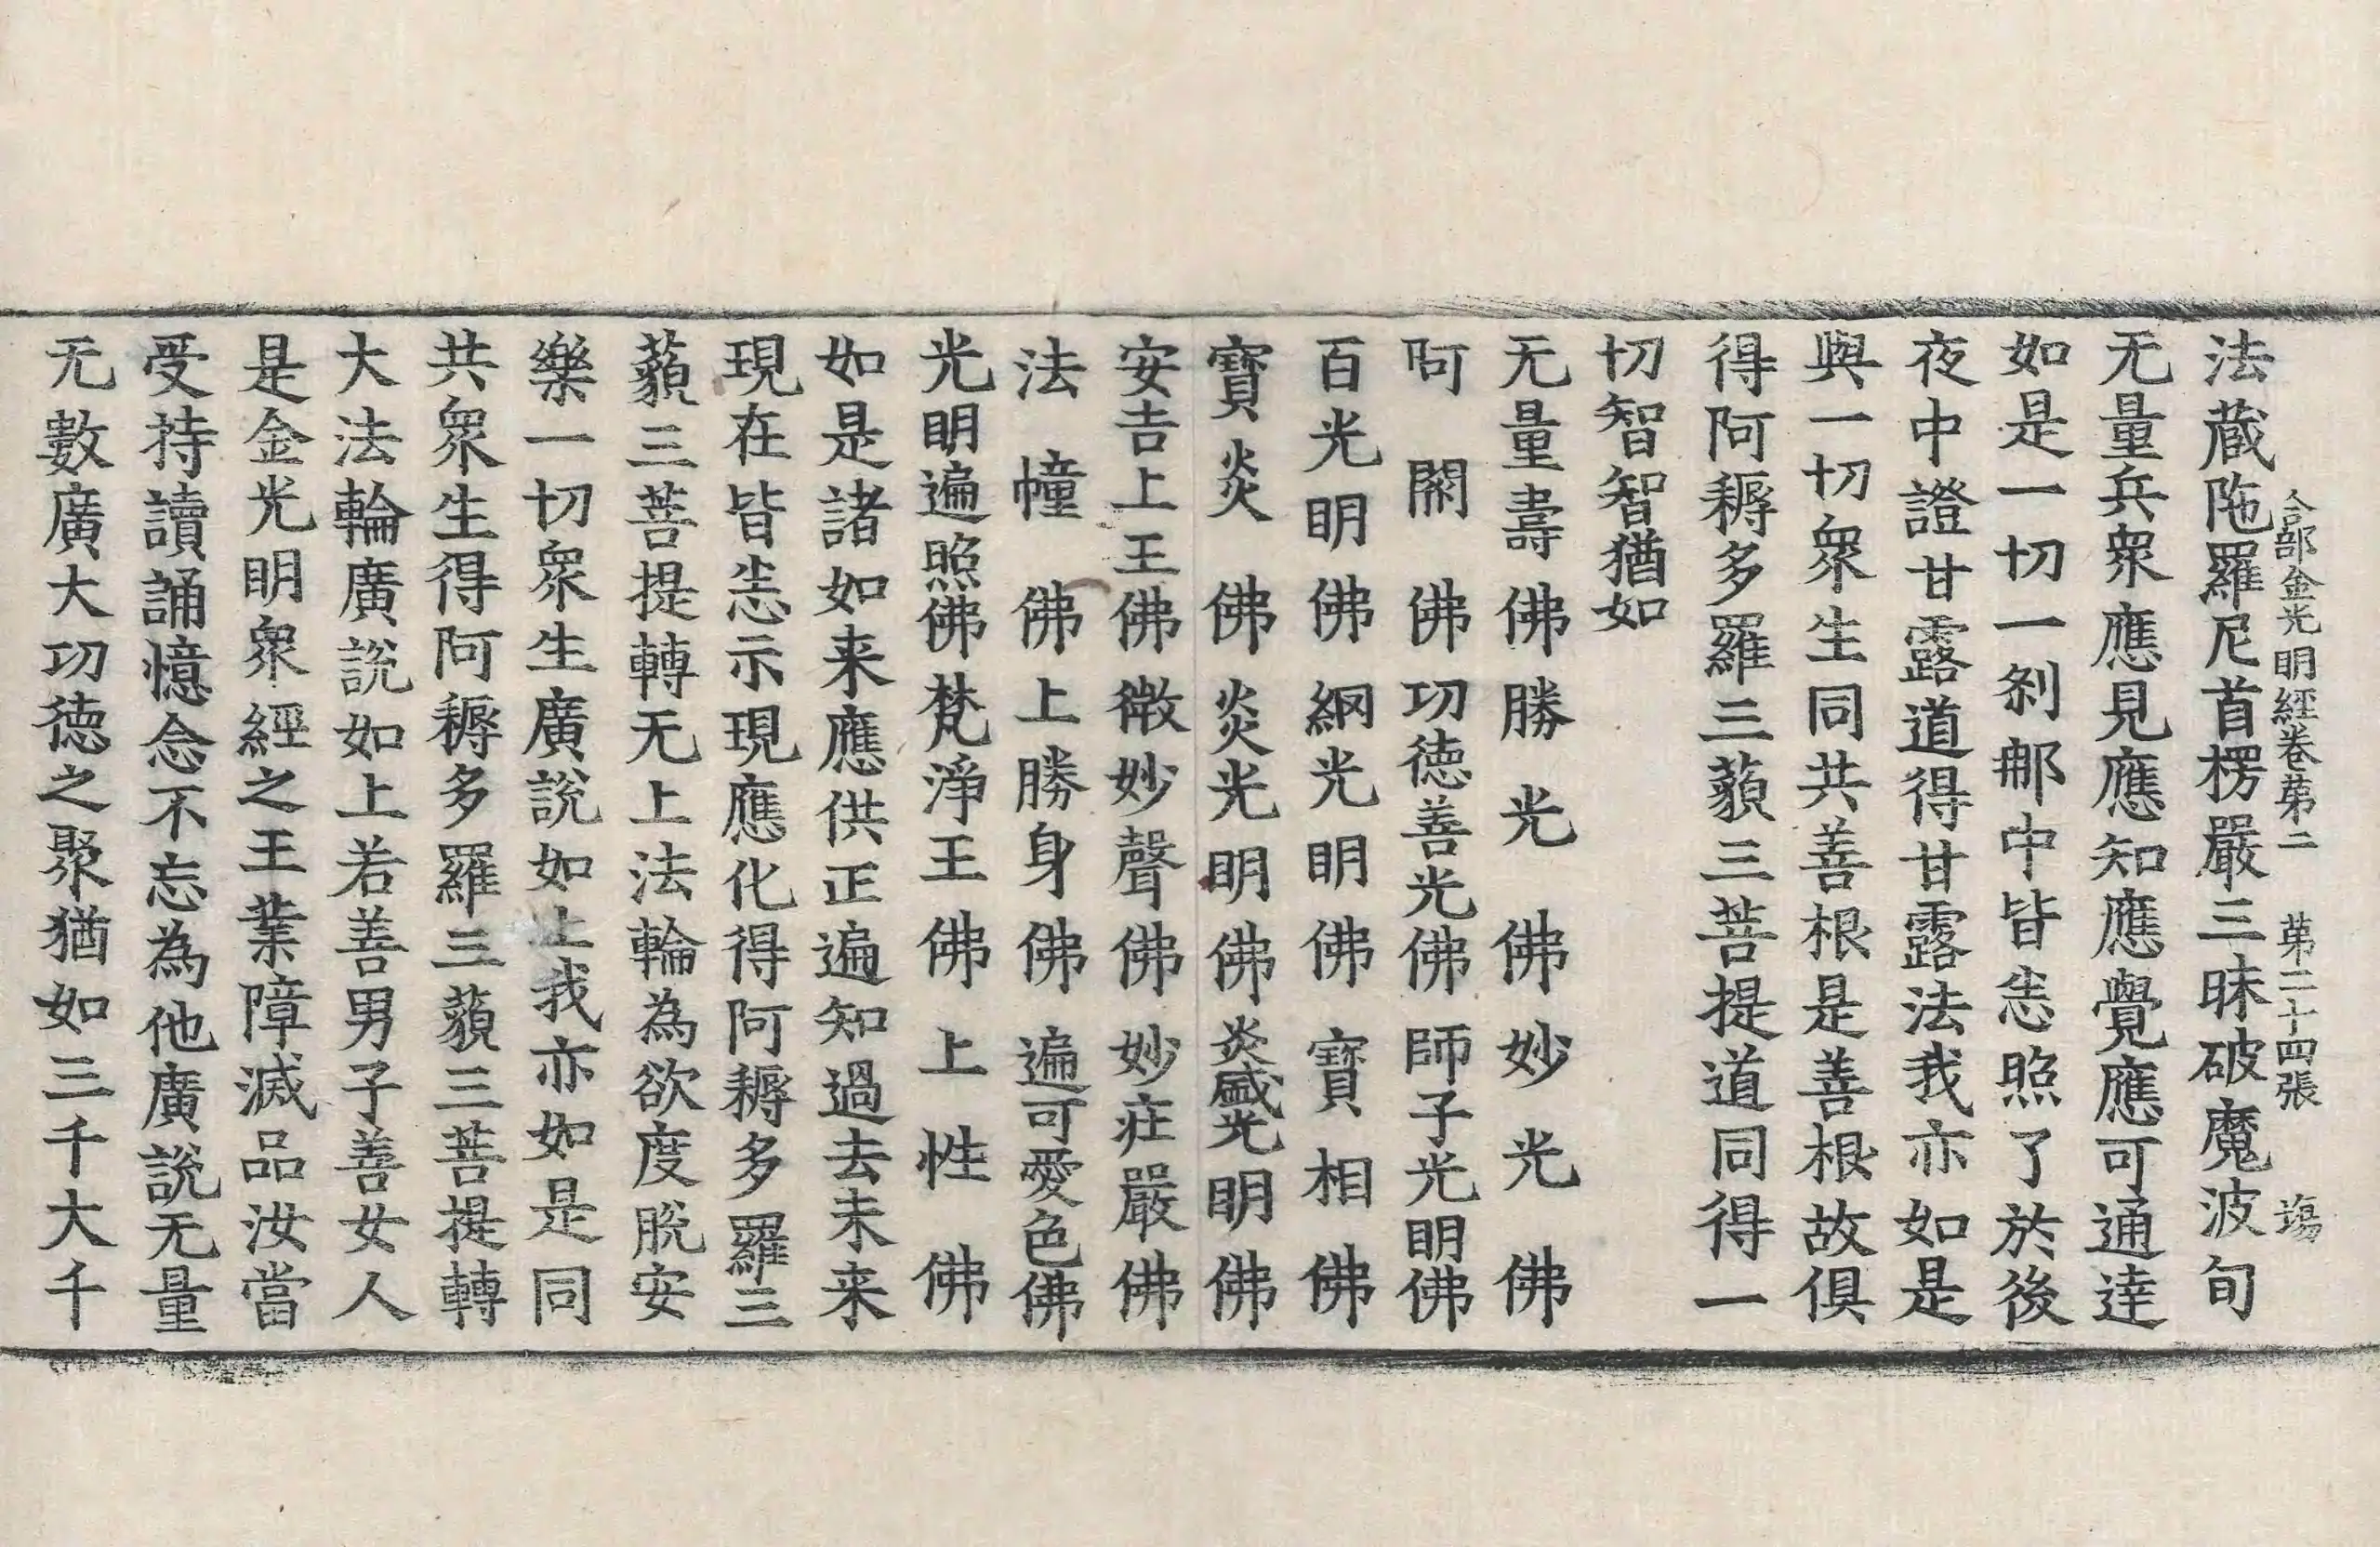 合部金光明經卷苐二　苐二十四張　塲
法蔵陁羅尼首楞嚴三昧破魔波旬
无量兵衆應見應知應覺應可通達
如是一切一刹𨙻中皆悉照了於後
夜中證甘露道得甘露法我亦如是
與一切衆生同共善根是善根故俱
得阿耨多羅三藐三菩提道同得一
切智智猶如
无量壽佛勝光佛妙光佛
阿閦佛功徳善光佛師子光明佛
百光明佛網光明佛寶相佛
寶炎佛炎光明佛炎盛光明佛
安吉上王佛微妙聲佛妙莊嚴佛
法幢佛上勝身佛遍可愛色佛
光明遍照佛梵淨王佛上性佛
如是諸如来應供正遍知過去未来
現在皆悉示現應化得阿耨多羅三
藐三菩提轉无上法輪為欲度脫安
樂一切衆生廣說如上我亦如是同
共衆生得阿耨多羅三藐三菩提轉
大法輪廣說如上若善男子善女人
是金光明衆經之王業障滅品汝當
受持讀誦憶念不忘為他廣說无量
无數廣大功徳之聚猶如三千大千